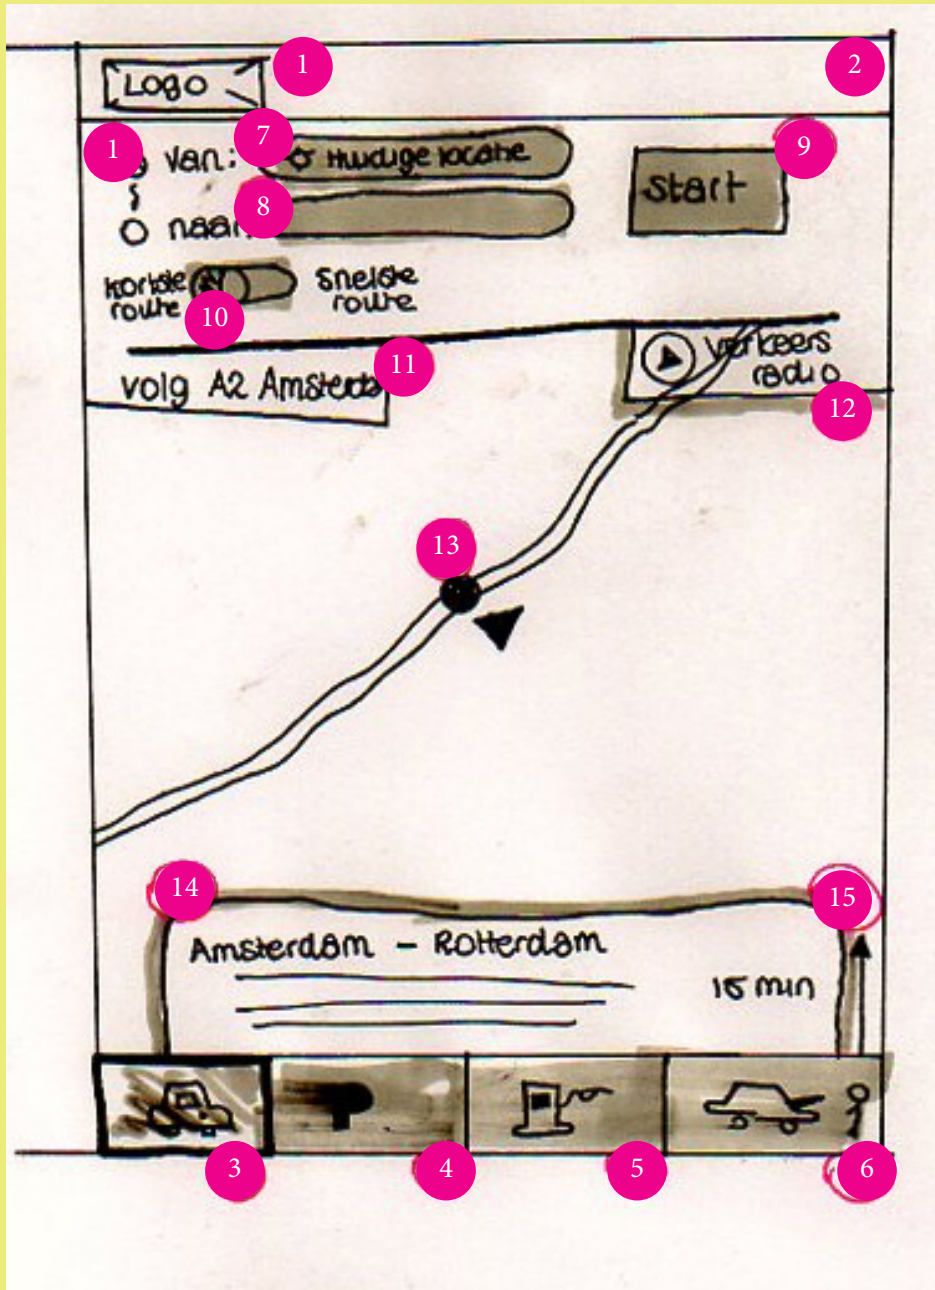 Logo
1
2
1
7
van: Huidige locatie
9
8
naar
start
kortste route
snelste route
10
11
volg A2 Amsterda
verkeers
radio
12
13
14
15
Amsterdam - Rotterdam
15 min
3
4
5
6